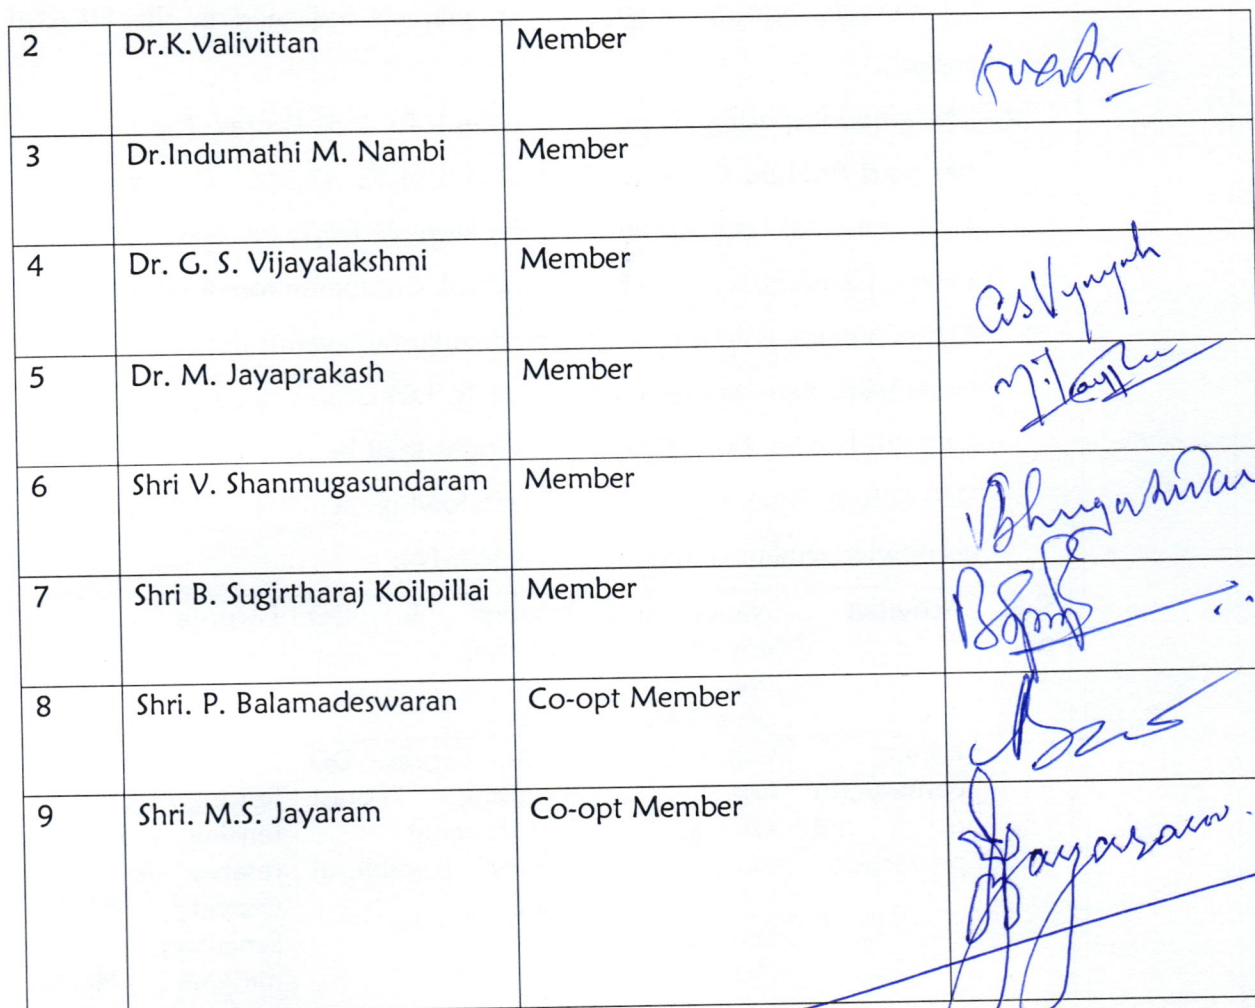 2 Dr.K.Valivittan Member
3 Dr.Indumathi M. Nambi Member
4 Dr. G. S. Vijayalakshmi Member
5 Dr. M. Jayaprakash Member
6 Shri V. Shanmugasundaram Member
7 Shri B. Sugirtharaj Koilpillai Member
8 Shri. P. Balamadeswaran Co-opt Member
9 Shri. M.S. Jayaram Co-opt Member